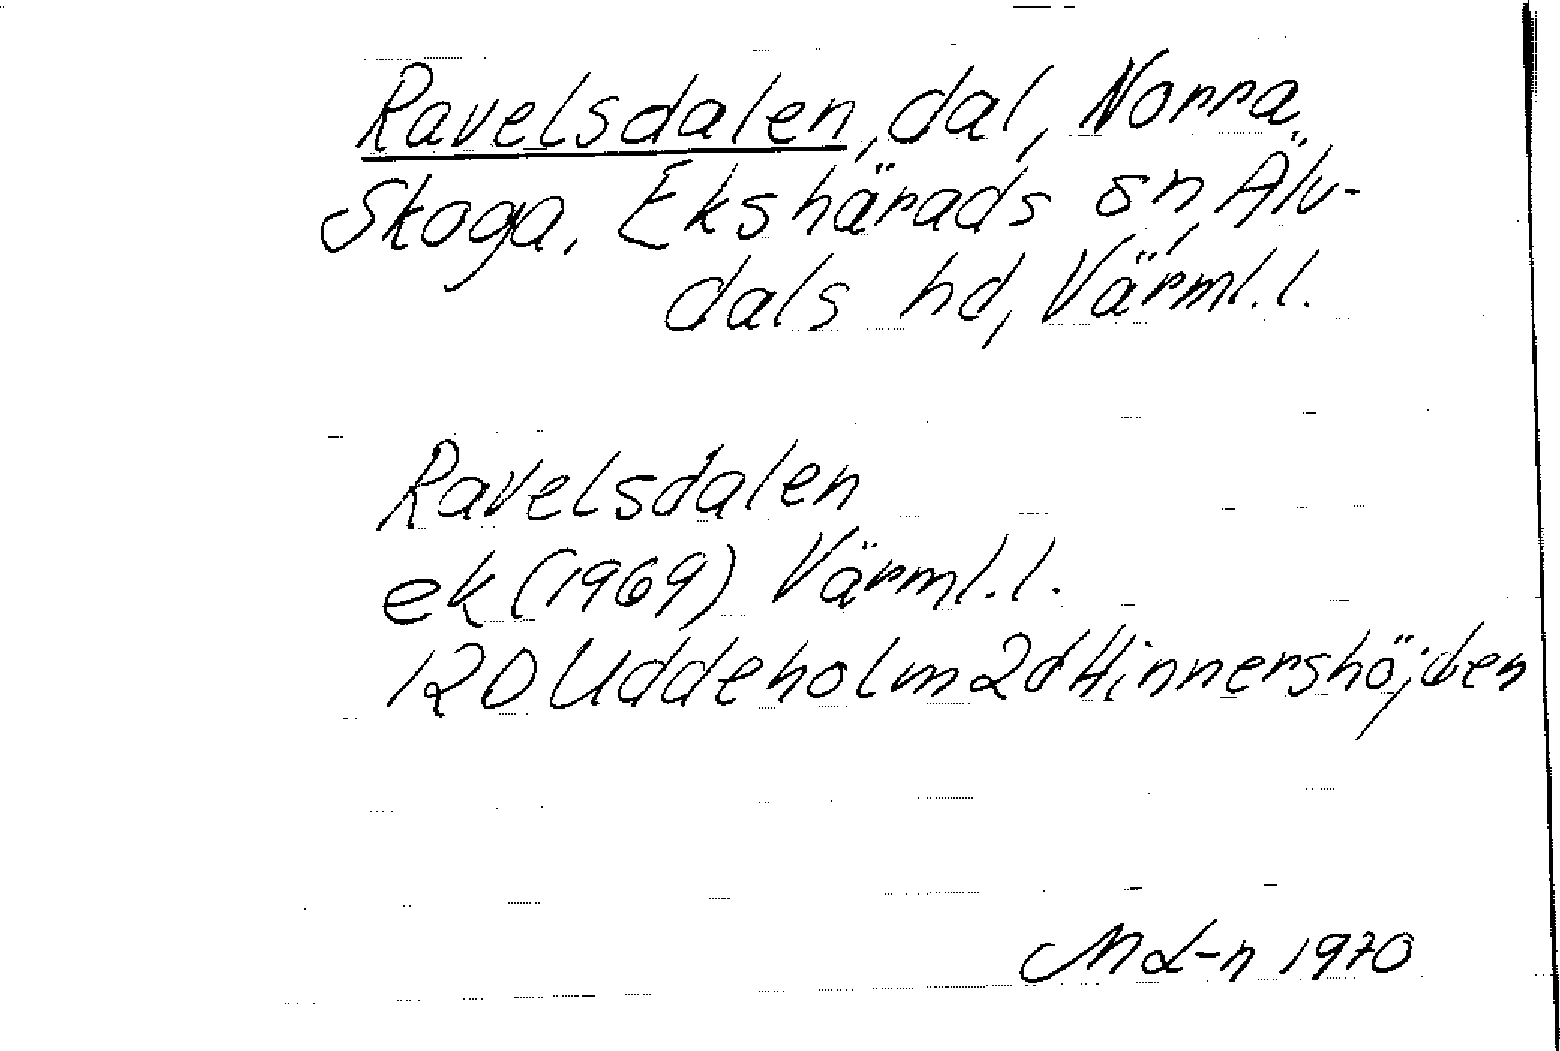 Ravelsdalen, dal, Norra
Skoga, Ekshärads sn, Älv-
dals hd, Värml.l.
Ravelsdalen
ek (1969) Värml.l.
12D Uddeholm 2d Hinnershöjden
ML-n 1970